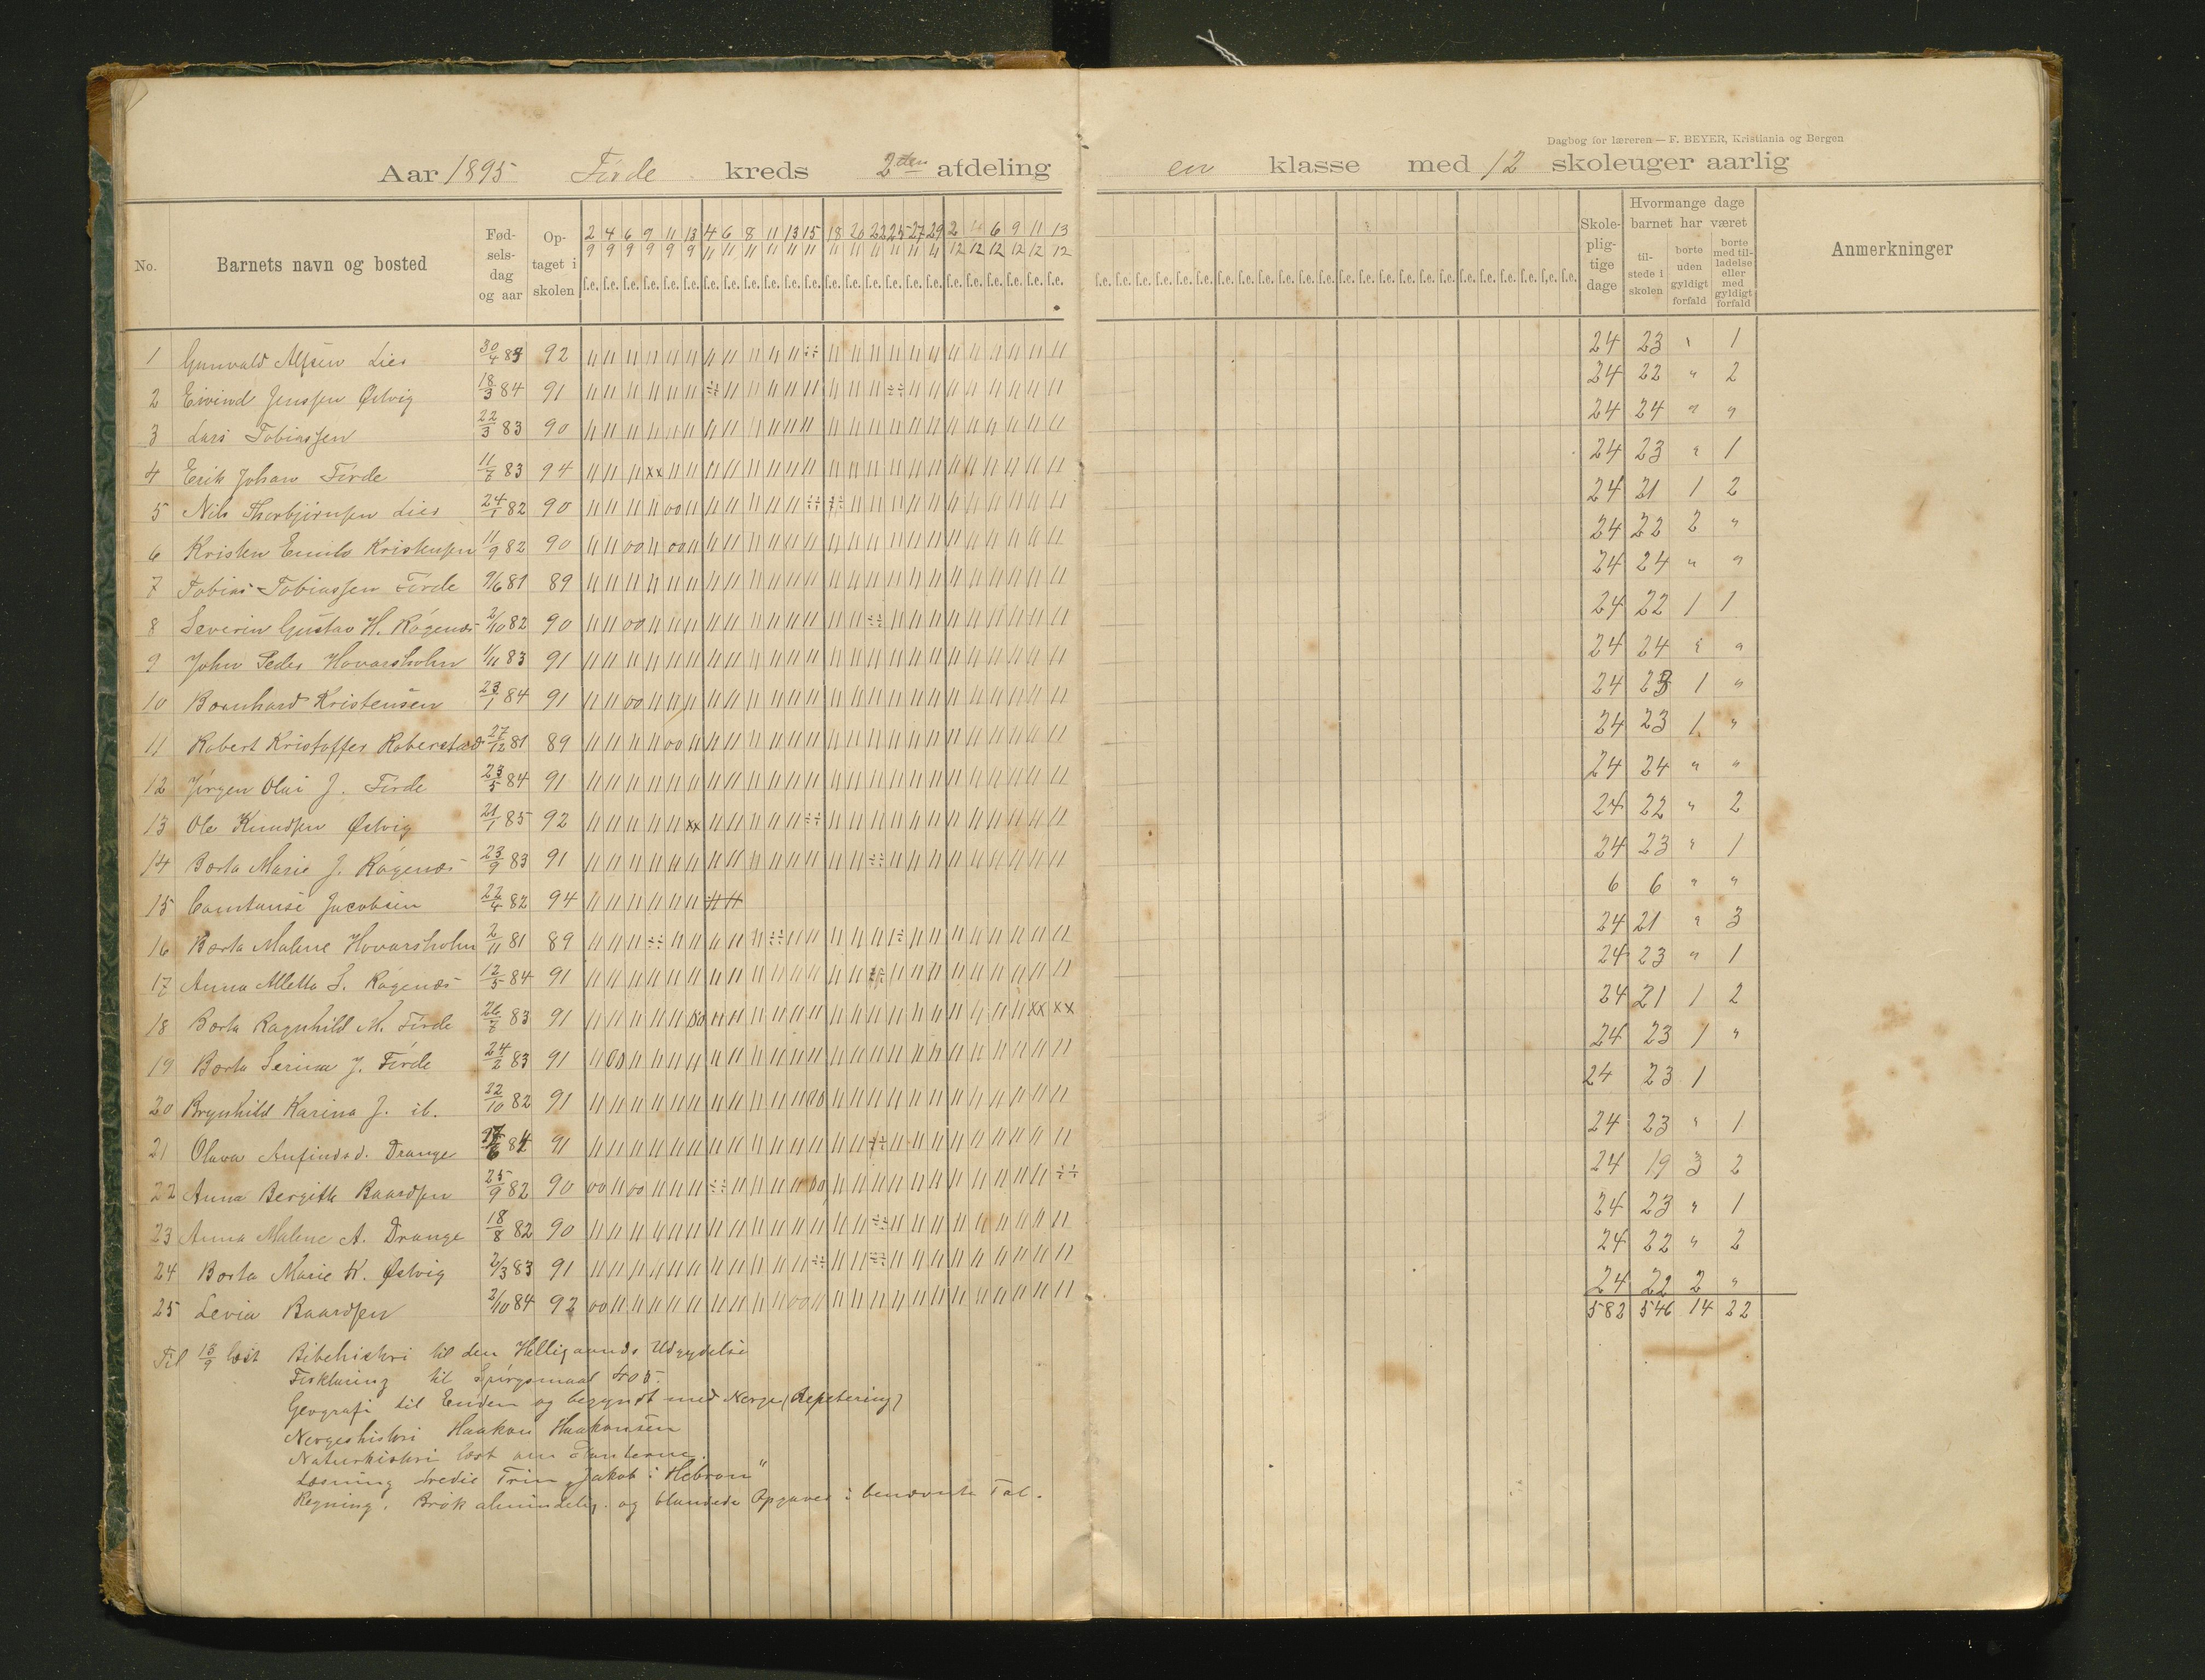 Dagbog for læreren — F. BEYER, Kristiania og Bergen
Aar 1895 Förde kreds 2den afdeling en klasse med 12 skoleuger aarlig
No. Barnets navn og bosted Fødselsdag og aar Optaget i skolen Skolepligtige dage Hvormange dage barnet har været Anmerkninger
tilstede i skolen borte uden gyldigt forfald borte med tilladelse eller med gyldigt forfald
2/9 4/9 6/9 9/9 11/9 13/9 4/11 6/11 8/11 11/11 13/11 15/11 18/11 20/11 22/11 25/11 27/11 29/11 2/12 6/12 9/12 11/12 13/12
f.e. f.e. f.e. f.e. f.e. f.e. f.e. f.e. f.e. f.e. f.e. f.e. f.e. f.e. f.e. f.e. f.e. f.e. f.e. f.e. f.e. f.e. f.e. f.e.
1 Gunvald Alfsen Lies 30/4 92 24 23 " 1
2 Eivind Jenssen Østvig 18/3 84 91 24 22 " 2
3 Lars Tobiassen 22/3 83 90 24 24 " "
4 Erik Johan Förde 11/7 83 94 24 23 " 1
5 Nils Thorbjörnsen Lies 24/1 82 90 24 21 1 2
6 Kristen Emil Kristensen 11/9 82 90 24 22 2 "
7 Tobias Tobiassen Förde 9/6 81 89 24 24 " "
8 Severin Gustav H. Rögenæs 2/10 82 90 24 22 1 1
9 John Peder Hovarsholm 1/11 83 91 24 24 " "
10 Bernhard Kristensen 23/1 84 91 24 23 1 "
11 Robert Kristoffer Roberstad 27/12 81 89 24 23 1 "
12 Jörgen Olai J. Förde 23/5 84 91 24 24 " "
13 Ole Knudsen Østvig 21/1 85 92 24 22 " 2
14 Borta Marie J. Rögenæs 23/9 83 91 24 23 " 1
15 Jacobsen 22/4 82 94 6 6 " "
16 Borta Malene Hovarsholm 2/11 81 89 24 21 " 3
17 Anna Alletta S. Rögenæs 12/5 84 91 24 23 " 1
18 Borta Ragnhild M. Förde 26/7 83 91 24 21 1 2
19 Borta Serina J. Förde 24/2 83 91 24 23 1 "
20 Brynhild Karina J. ib. 22/10 82 91 24 23 1
21 Olava Anfindsd. Drange 84 91 24 23 " 1
22 Anna Bergithe Baardsen 25/9 82 90 24 19 3 2
23 Anna Malene A. Drange 18/8 82 90 24 23 " 1
24 Borta Marie K. Østvig 2/3 83 91 24 22 " 2
25 Levia Baardsen 2/10 84 92 24 22 2 "
582 546 14 22
Til 15/9 læst Bibelhistori til den Helligaands Udgydelse
Forklaring til Spörgsmaal 405.
Geografi til Enden og begyndt med Norge (Repetering)
Norgeshistori Haakon Haakonsen
Naturhistori læst om Planterne.
Læsning tredie Trin „Jakob i Hebron"
Regning. Brök almindelig. og blandede Opgaver i benævnte Tal.